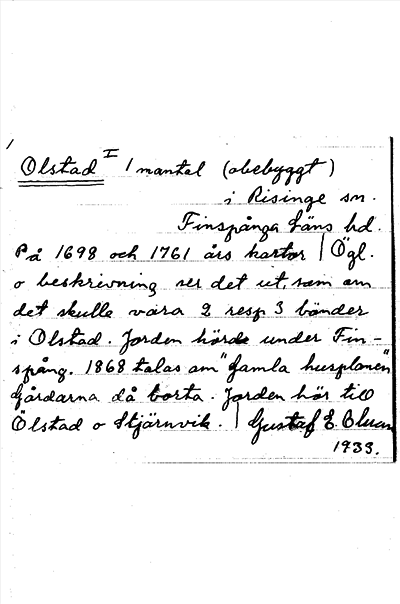 Olstad I 1 mantal (obebyggt)
i Risinge sn.
Finspånga läns hd.
På 1698 och 1761 års kartor | Ögl.
o beskrivning ser det ut, som om
det skulle vara 2 resp 3 bönder
i Olstad. Jorden hörde under Fin-
spång. 1868 talas om "Gamla husplanen"
Gårdarna då borta. Jorden hör till
Ölstad o Stjärnvik. | Gustaf E.
1933.